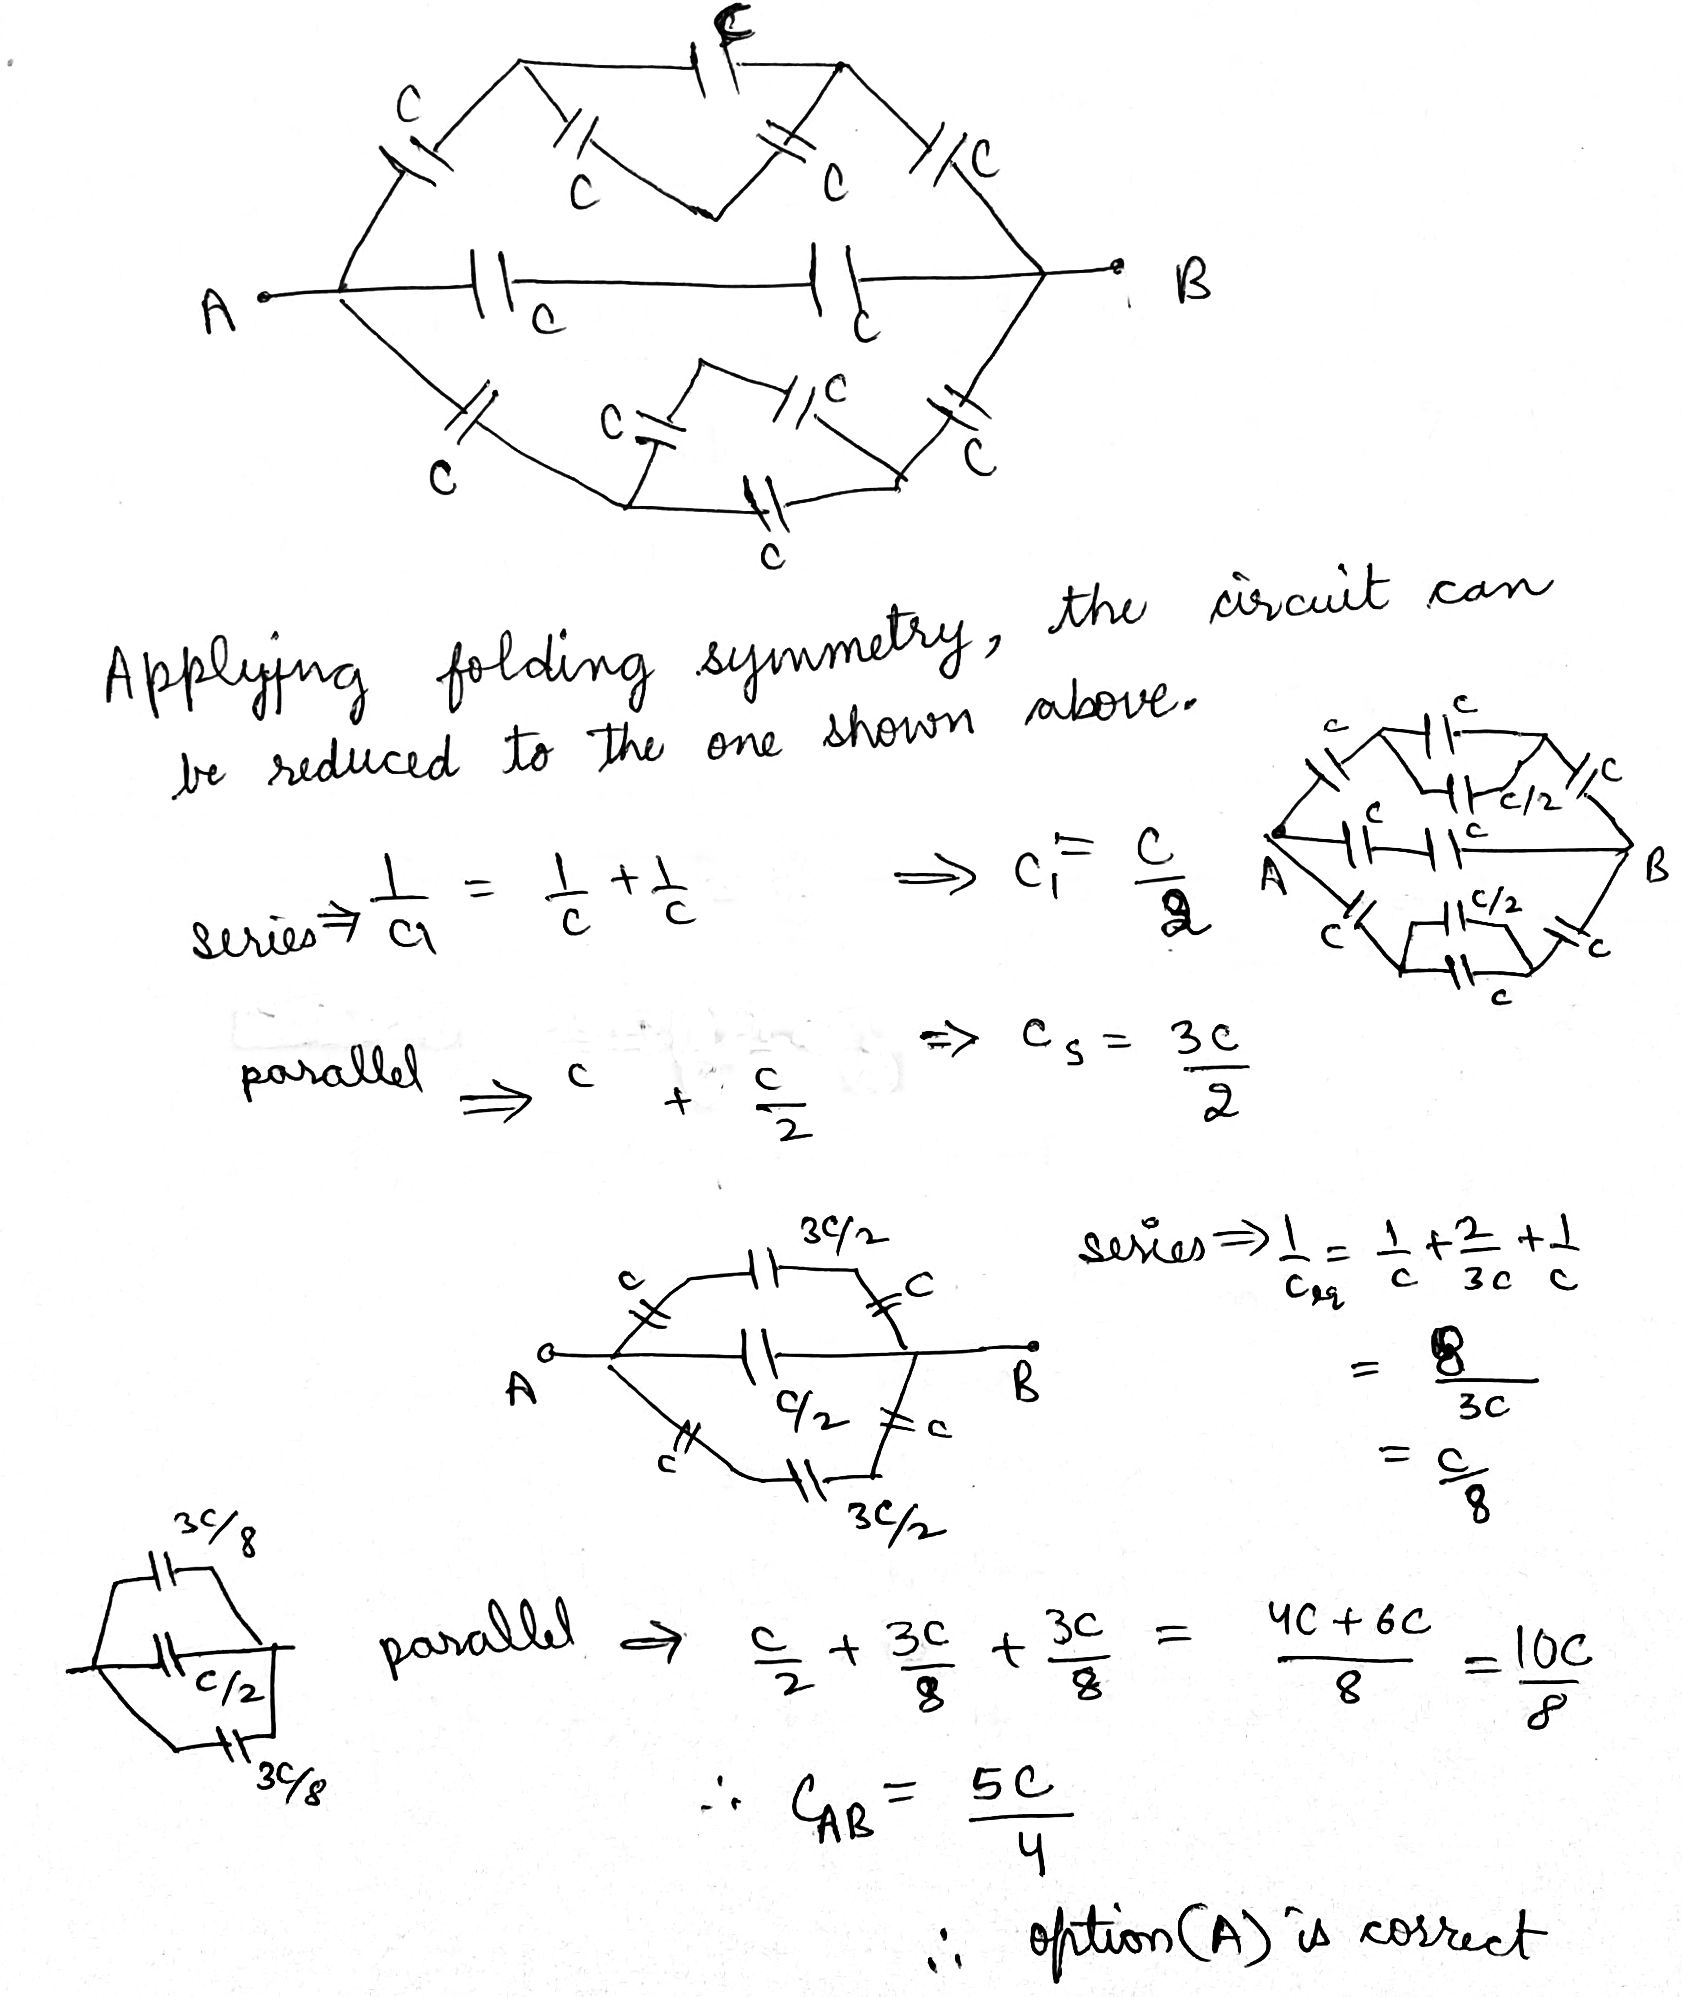 C
C
C
C
C
A
C
C
B
C
C
C
C
C
Applying folding symmetry, the circuit can
be reduced to the one shown above.
C
C
C
C/2
C
C
A
B
C/2
C
C
C
series ⇒ 1/C1 = 1/C + 1/C ⇒ C1 = C/2
parallel ⇒ C + C/2 ⇒ Cs = 3C/2
3C/2
C
C
A
B
C/2
C
C
3C/2
series ⇒ 1/Ceq = 1/C + 2/3C + 1/C
= 8/3C
= C/8
3C/8
C/2
3C/8
parallel ⇒ C/2 + 3C/8 + 3C/8 = 4C + 6C/8 = 10C/8
∴ CAB = 5C/4
∴ option (A) is correct